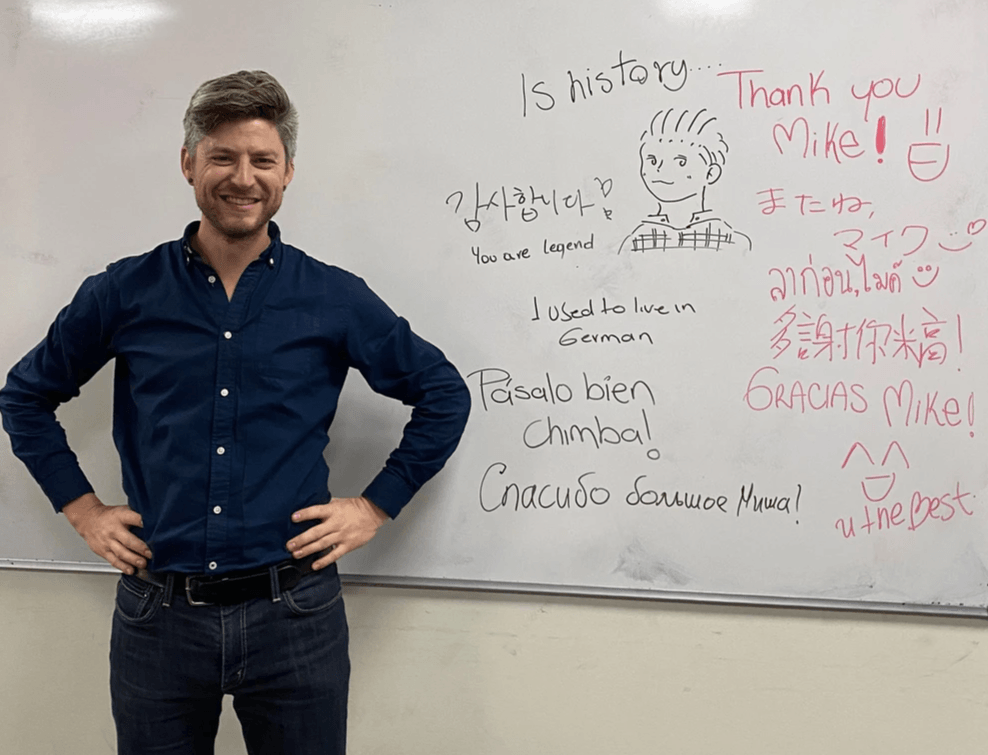 Is history....
감사합니다
You are legend
I used to live in
German
Pásalo bien
Chimba!
Спасибо большое Миша!
Thank you
Mike!
またね,
マイク
ลาก่อน,ไมค์
多謝你米高!
GRACIAS MIKE!
u the Best